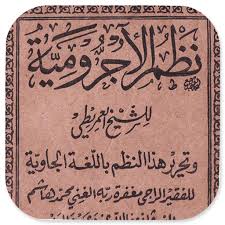 نظم الآجرومية
للشيخ العمريطي
وتحرير هذا النظم باللغة الجاوية
للفقير الراجي مغفرة ربه الغني محمد هاشم